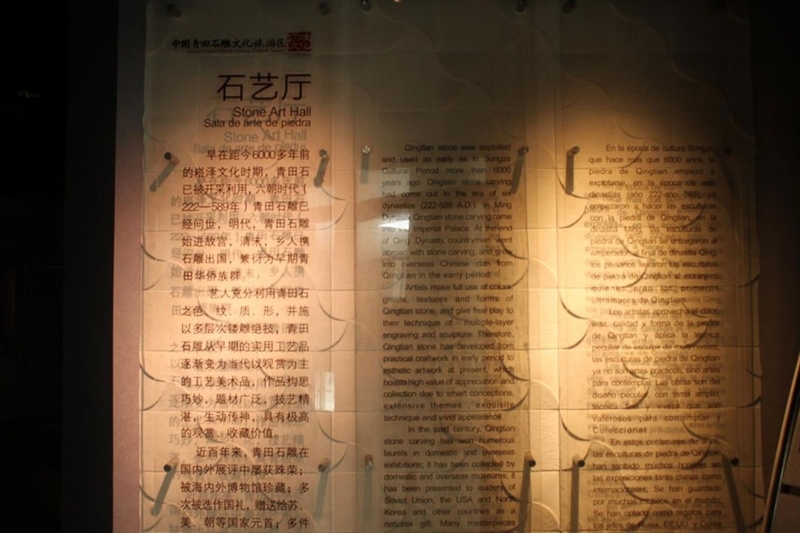 中国青田石雕文化旅游区
石艺厅
Stone Art Hall
Sala de arte de piedra
早在距今6000多年前
的崧泽文化时期，青田石
已被开采利用，六朝时代（
222—589年）青田石雕已
经问世，明代，青田石雕
始进故宫，清末，乡人携
石雕出国，繁衍为早期青
田华侨族群。
艺人充分利用青田石
之色、纹、质、形，并施
以多层次镂雕绝技，青田
石雕从早期的实用工艺品
逐渐变为当代以观赏为主
的工艺美术品，作品构思
巧妙，题材广泛，技艺精
湛，生动传神，具有极高
的观赏、收藏价值。
近百年来，青田石雕在
国内外展评中屡获殊荣；
被海内外博物馆珍藏；多
次被选作国礼，赠送给苏、
美、朝等国家元首；多件
Qingtian stone was exploited
and used as early as in Songze
Cultural Period more than 6000
years ago. Qingtian stone carving
had come out in the era of six
dynasties (222-589 A.D.) In Ming
Dynasty, Qingtian stone carving came
into the Imperial Palace. At the end
of Qing Dynasty, countrymen went
abroad with stone carving, and grew
into overseas Chinese clan from
Qingtian in the early period.
Artists make full use of colour
grains, textures and forms of
Qingtian stone, and give free play to
their technique of multiple-layer
engraving and sculpture. Therefore,
Qingtian stone has developed from
practical craftwork in early period to
esthetic artwork at present, which
boasts high value of appreciation and
collection due to smart conceptions,
extensive themes, exquisite
technique and vivid appearance.
In the past century, Qingtian
stone carving has won numerous
laurels in domestic and overseas
exhibitions; it has been collected by
domestic and overseas museums; it
has been presented to leaders of
Soviet Union, the USA and North
Korea and other countries as a
national gift. Many masterpieces
En la época de cultura Songze
que hace más que 6000 años, la
piedra de Qingtian empezó a
explotarse, en la época de seis
dinastías (año 222-año 589) ya
empezaron a hacer las esculturas
con la piedra de Qingtian, en la
dinastía Ming, las esculturas de
piedra de Qingtian se entregaron al
emperador, a final de dinastía Qing,
los paisanos llevaron las esculturas
de piedra de Qingtian al extranjero,
quienes eran los primeros
ultramares de Qingtian.
Los artistas aprovecha el color,
veta, calidad y forma de la piedra
de Qingtian y aplica la técnica
las esculturas de piedra de Qingtian
ya no son artes prácticos, sino artes
para contemplar. Las obras son del
valerosos para contemplar y
Coleccionar.
En estos cien años,
las esculturas de piedra de Qingtian
han recibido muchos honores en
las exposiciones tanto chinas como
internacionales; Se han guardado
por muchos museos en el mundo;
Se han optado como regalos para
los jefes de Rusia, EE.UU. y Corea